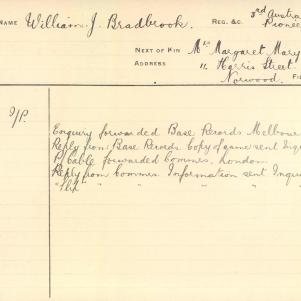 NAME William J. Bradbrook. REG. &C. 3rd Austra
Pioneer
NEXT OF KIN Mrs Margaret Mary
ADDRESS 11 Harris Street
Norwood. F
Enquiry forwarded Base Records Melbou
Reply from Base Records. Copy of same sent Inq
Cable forwarded Commrs. London
Reply from Commrs. Information sent Inqui
" " " "